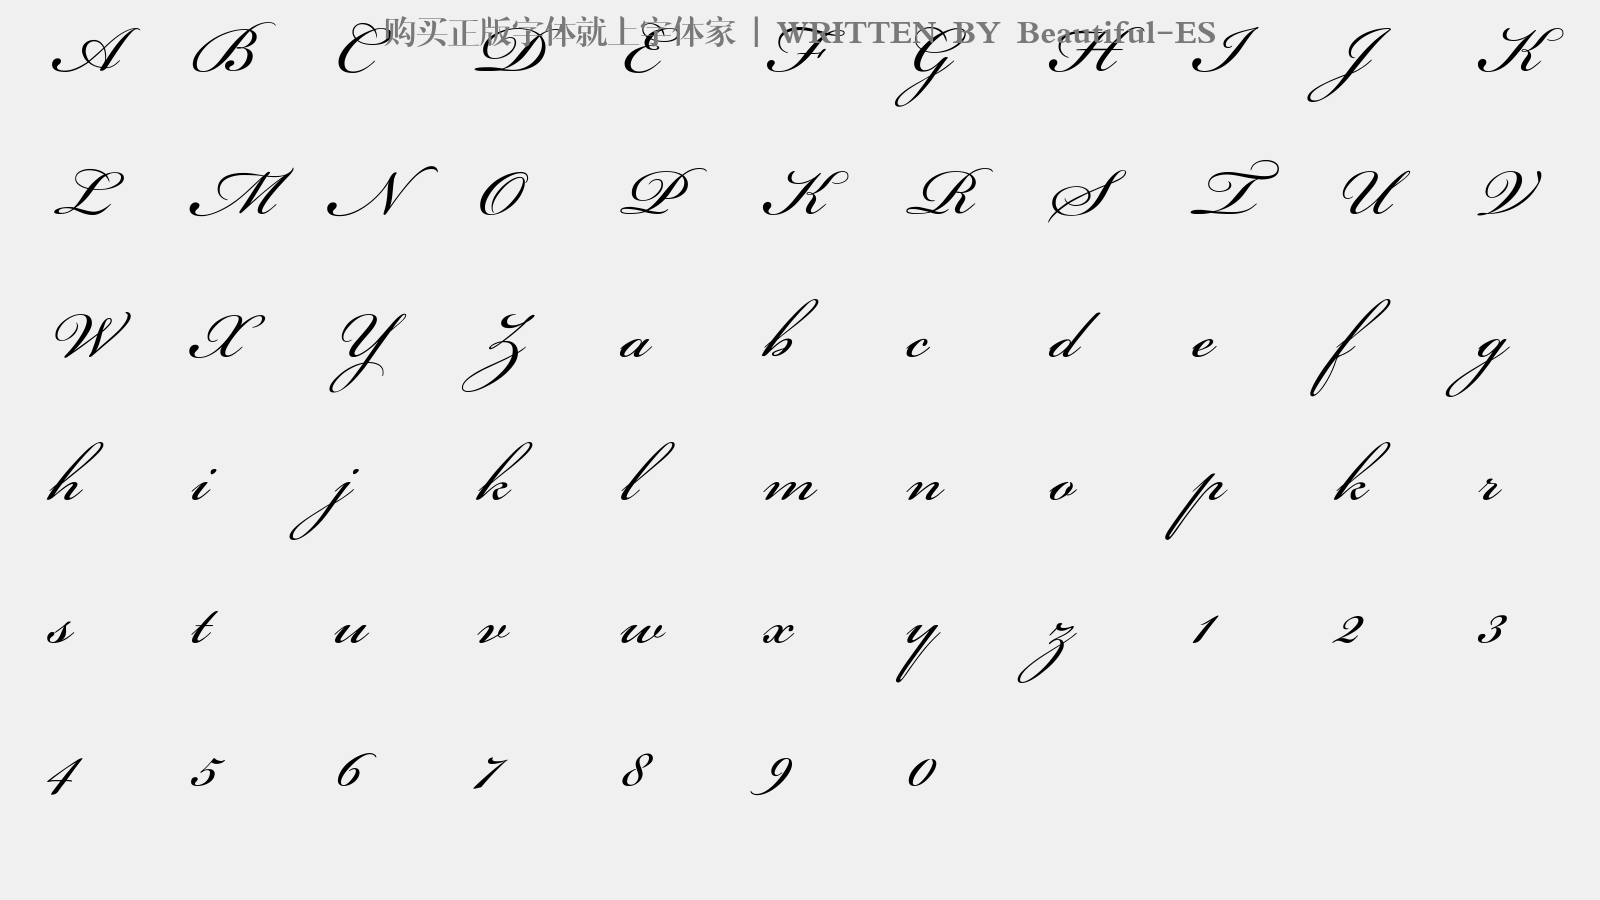 购买正版字体就上字体家 | WRITTEN BY Beautiful-ES
A B C D E F G H I J K
L M N O P K R S T U V
W X Y Z a b c d e f g
h i j k l m n o p k r
s t u v w x y z 1 2 3
4 5 6 7 8 9 0